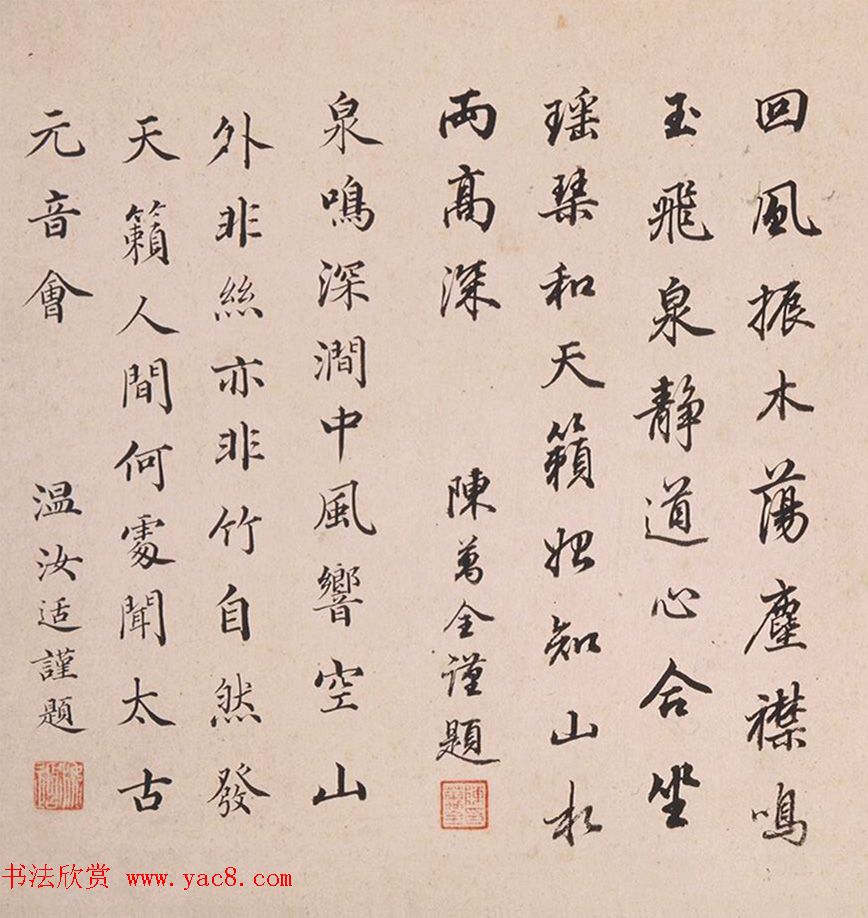 回風振木蕩塵襟鳴
玉飛泉靜道心合坐
瑶琴和天籟始知山水
兩高深
陳萬全謹題
泉鳴深澗中風響空山
外非絲亦非竹自然發
天籟人間何處聞太古
元音會
温汝适謹題
书法欣赏 www.yac8.com